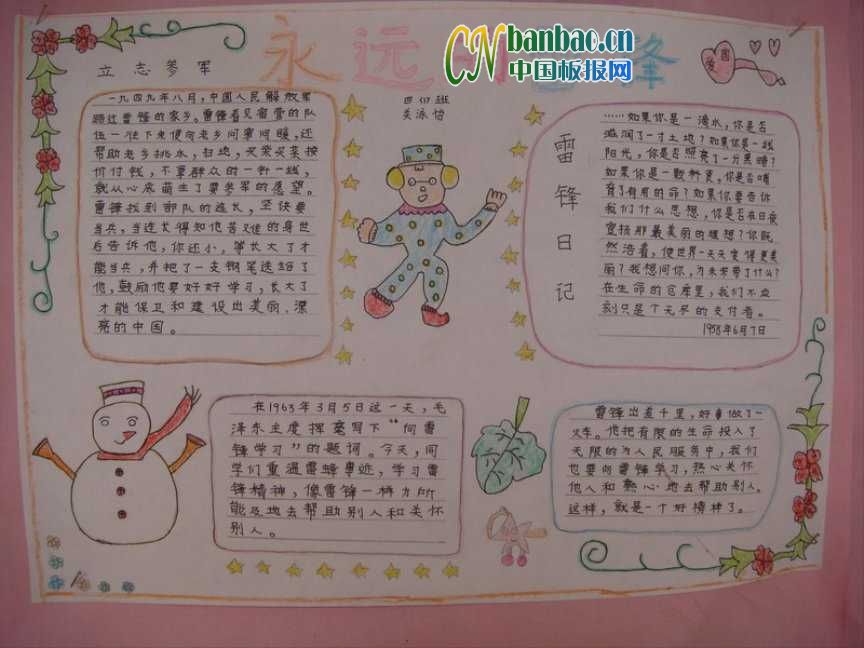 永远的雷锋
CNbanbao.cn
中国板报网
立志参军
四(1)班
关泳怡
爱国
一九四九年八月，中国人民解放军
路过雷锋的家乡。雷锋看见宿营的队
伍一住下来便向老乡问寒问暖，还
帮助老乡挑水，扫地，买柴买菜按
价付钱，不拿群众的一针一线，
就从心底萌生了要参军的愿望。
雷锋找到部队的连长，坚决要
当兵，当连长得知他苦难的身世
后告诉他，你还小，等长大了才
能当兵，并把了一支钢笔送给了
他，鼓励他要好好学习，长大了
才能保卫和建设出美丽、漂
亮的中国。
雷锋日记
……如果你是一滴水，你是否
滋润了一寸土地？如果你是一线
阳光，你是否照亮了一分黑暗？
如果你是一颗粮食，你是否哺
育了有用的命？如果你要告诉
我们什么思想，你是否在日夜
宣扬那最美丽的理想？你既
然活着，使世界一天天变得更美
丽？我想问你，为未来带了什么？
在生命的仓库里，我们不应
刻只是个无尽的支付者。
1958年6月7日
在1963年3月5日这一天，毛
泽东主席挥毫写下“向雷
锋学习”的题词。今天，同
学们重温雷锋事迹，学习雷
锋精神，像雷锋一样力所
能及地去帮助别人和关怀
别人。
雷锋出差千里，好事做了一
火车。他把有限的生命投入了
无限的为人民服务中，我们
也要向雷锋学习，热心关怀
他人和熟心地去帮助别人。
这样，就是一个好榜样了。